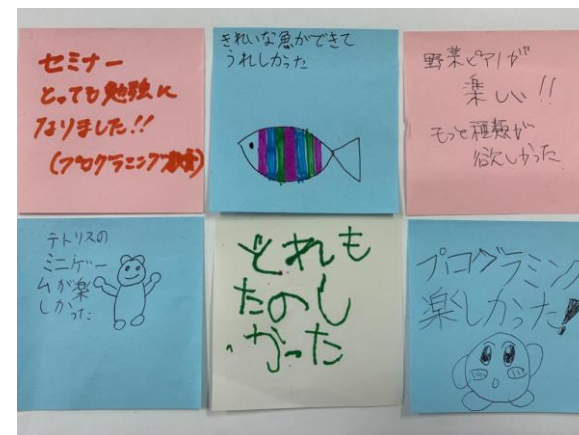 セミナー
とっても勉強に
なりました!!
(プログラミング教育)
きれいな魚ができて
うれしかった
野菜ピアノが
楽しい!!
もっと種類が
欲しかった
テトリスの
ミニゲー
ムが楽
しかった
どれも
たのし
かった
プログラミング
楽しかった!